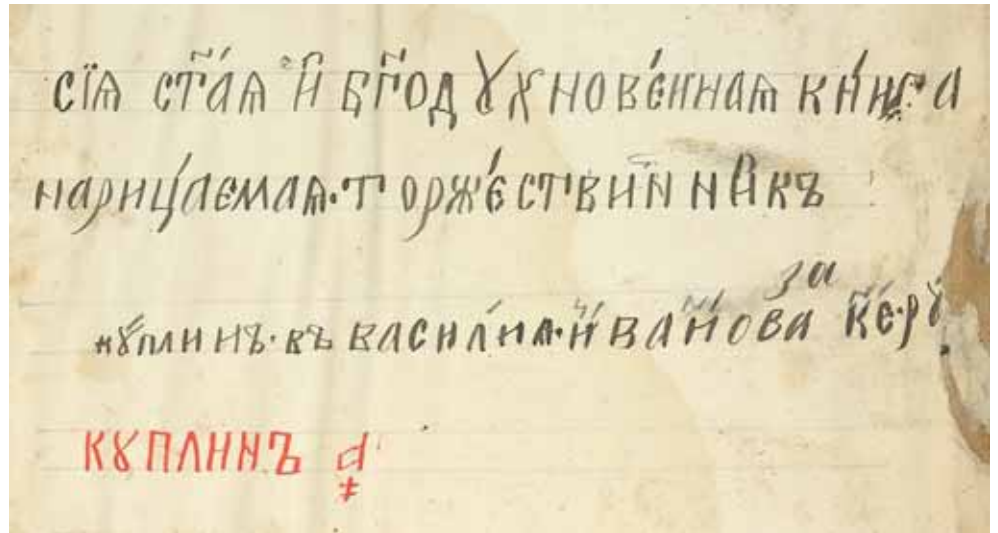 сїѧ ст҃аѧ и҆ бг҃одꙋхнове́ннаѧ кни́га
нарица́емаѧ·торже́ствинникъ
за
кꙋплинъ·въ васи́лиѧ·и҆ва́нова к҃е·рꙋ
кꙋплинъ ҂а